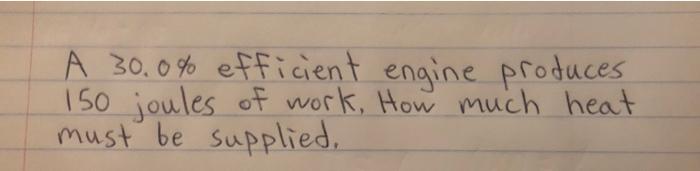 A 30.0% efficient engine produces
150 joules of work. How much heat
must be supplied.